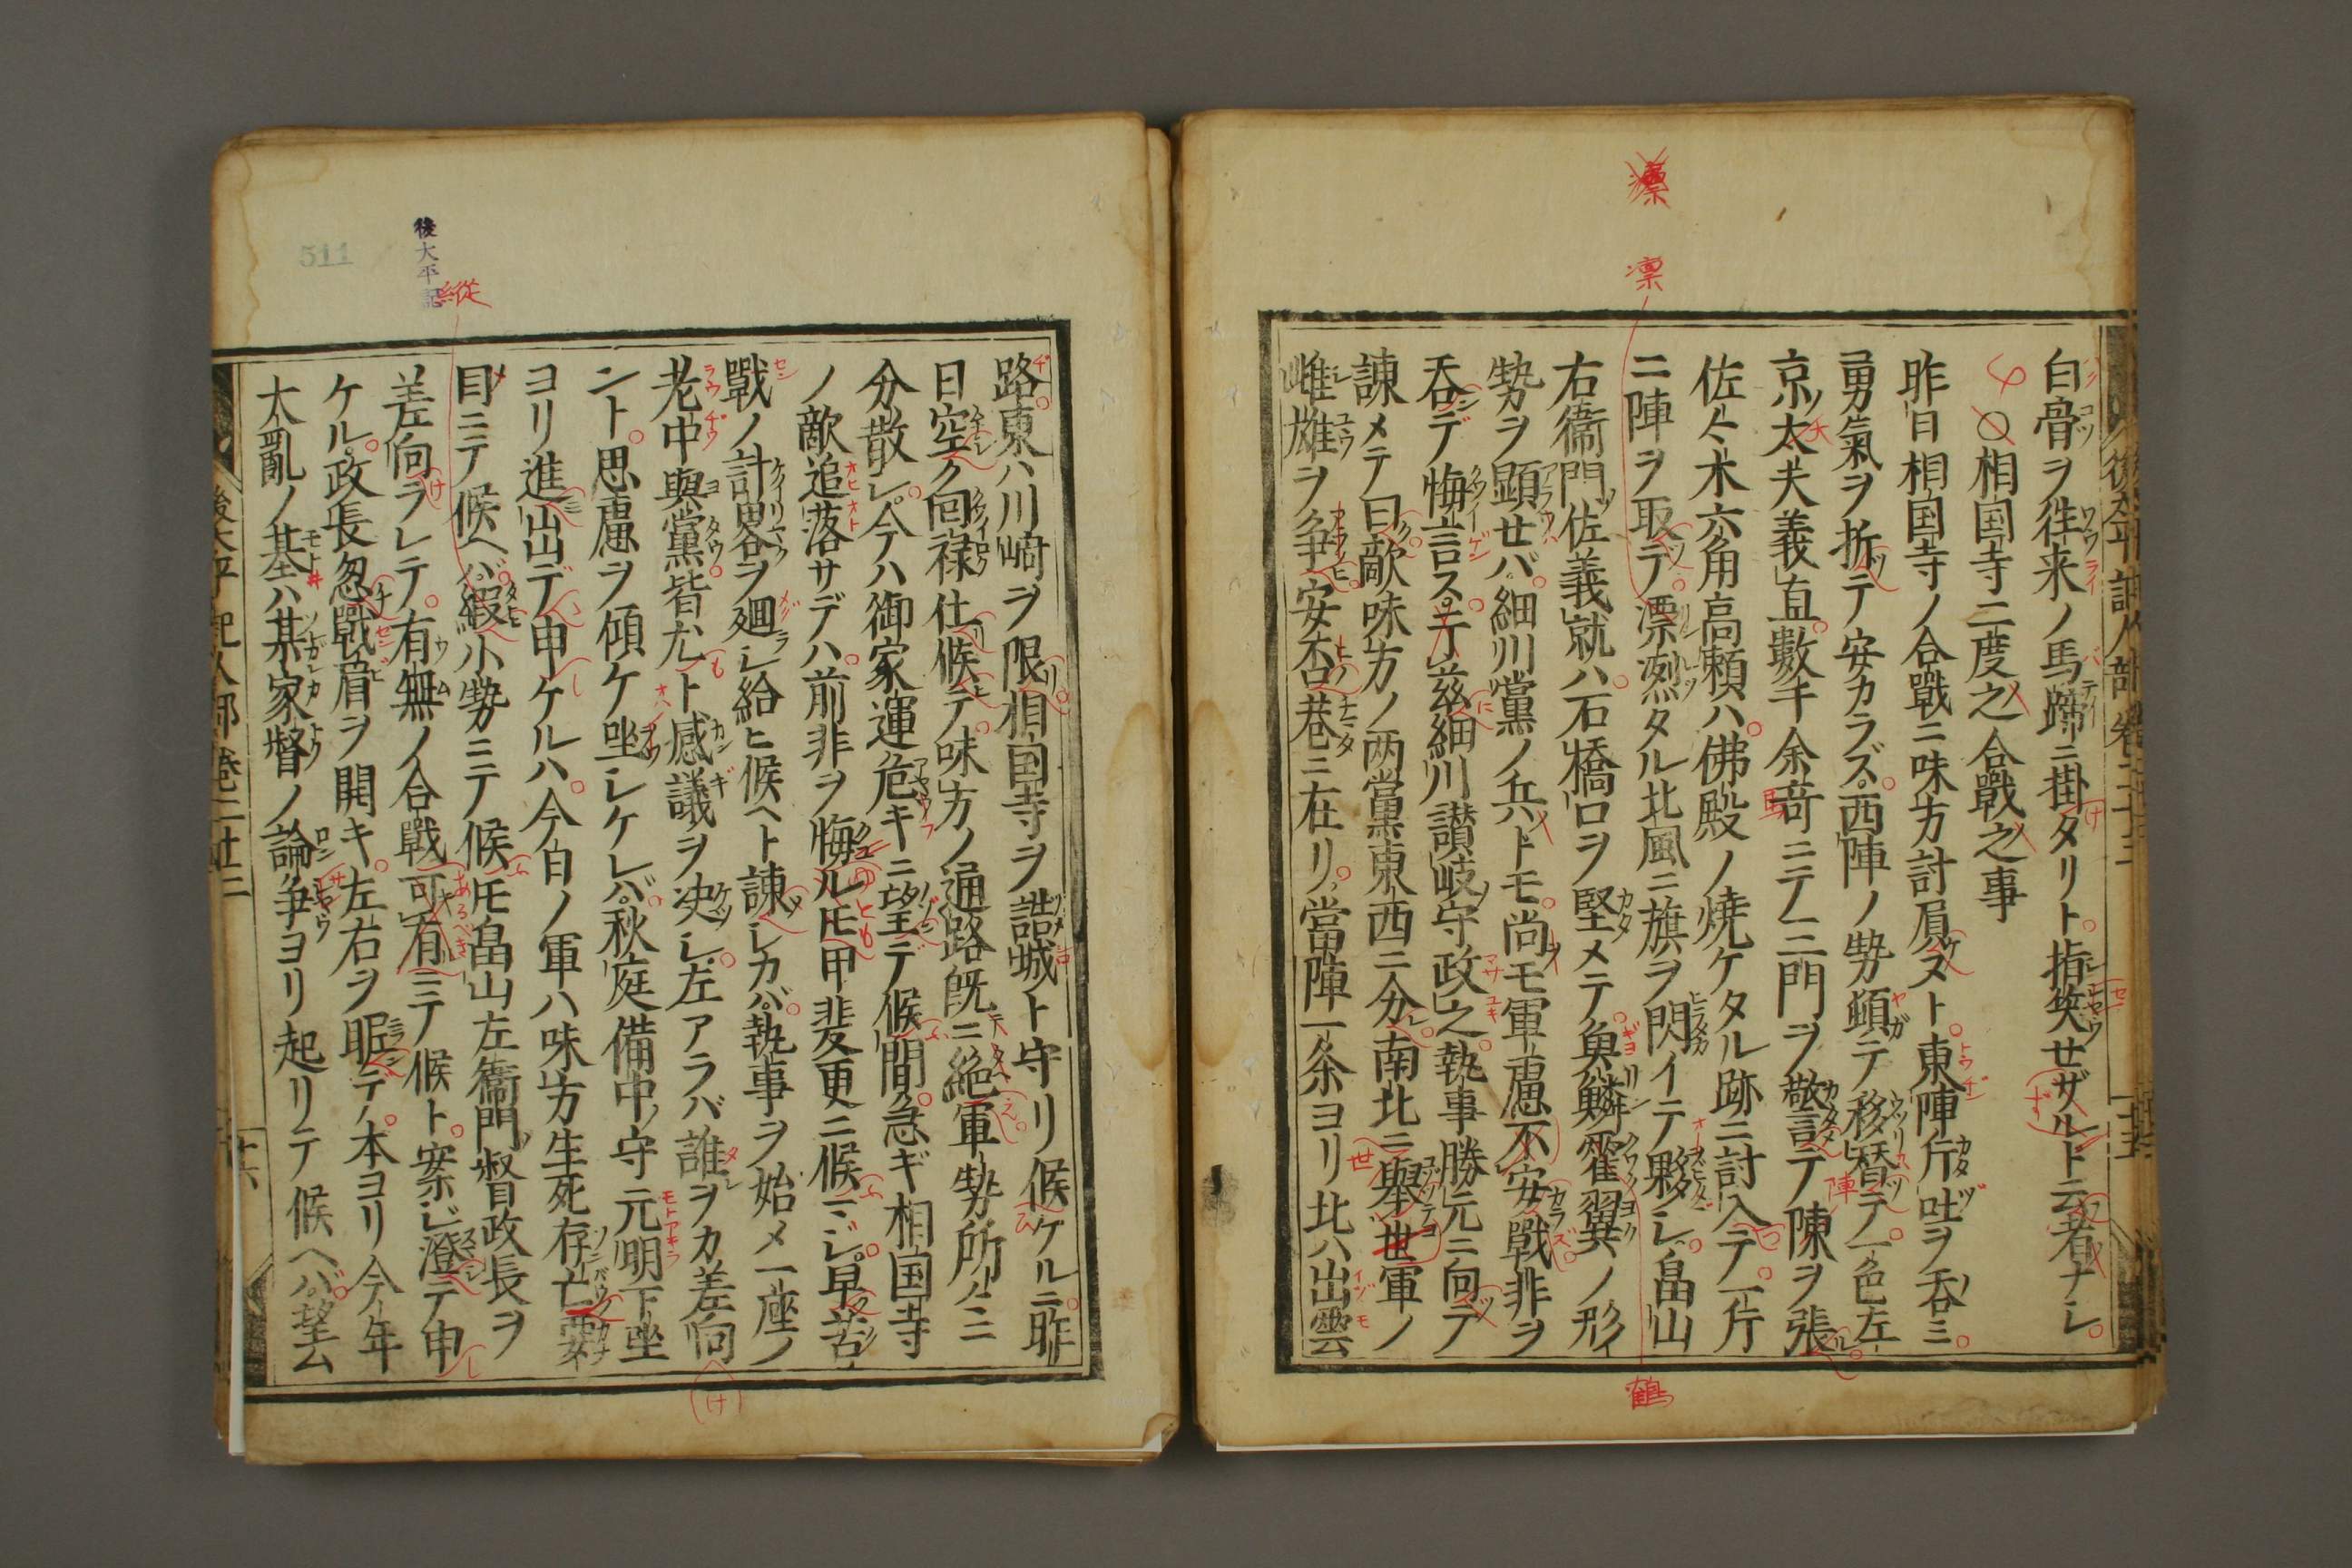 白骨ヲ徃来ノ馬蹄ニ掛タリト指笑せザルト云者ナシ
○相国寺二度之合戰之事
昨日相国寺ノ合戰ニ味方討屓ヌト東陣斤吐ヲ呑ミ
勇氣ヲ折テ安カラズ西陣ノ勢頏テ移替テ一色左
京太夫義直數千余竒ニテ三門ヲ警テ陳ヲ張
佐〻木六角高頼ハ佛殿ノ焼ケタル跡ニ討入テ一斤
ニ陣ヲ取テ漂烈タル北風ニ旗ヲ閃イテ夥シ畠山
右衞門佐義就ハ石橋口ヲ堅メテ魚鱗霍翼ノ形イ
勢ヲ顕せバ細川黨ノ兵トモ尚モ軍慮不安戰非ヲ
呑デ悔言ス于茲細川讃岐守政之執事勝元ニ向テ
諌メテ曰敵味方ノ两黨東西ニ分南北ニ舉世軍ノ
雌雄ヲ争安否巷ニ在リ當陣一条ヨリ北ハ出雲
路東ハ川﨑ヲ限相国寺ヲ詰城ト守リ候ケルニ昨
日空ク囘禄仕候テ味方ノ通路既ニ絶軍勢所〻ニ
分散レ今ハ御家運危キニ望デ候間急ギ相国寺
ノ敵追落サデハ前非ヲ悔ル𪜈甲斐更ニ候ニジ早苦
戰ノ計畧ヲ廻シ給ヒ候ヘト諌レカバ執事ヲ始メ一座ノ
老中與黨皆尤ト感議ヲ决シ左アラバ誰ヲカ差向
ント思慮ヲ傾ケ坐レケレバ秋庭備中ノ守元明下坐
ヨリ進出デ申ケルハ今日ノ軍ハ味方生死存亡要
目ニテ候ヘバ縀小勢ニテ候𪜈畠山左衞門ノ督政長ヲ
差向ラレテ有無ノ合戰可有ニテ候ト案シ澄テ申
ケル政長忽戰眉ヲ開キ左右ヲ眤デ本ヨリ今年
太亂ノ基ハ某家督ノ論争ヨリ起リテ候ヘハ望ム
後太平記人部卷二廿三
十六
後大平記
511
漂
凛
鶴
縱